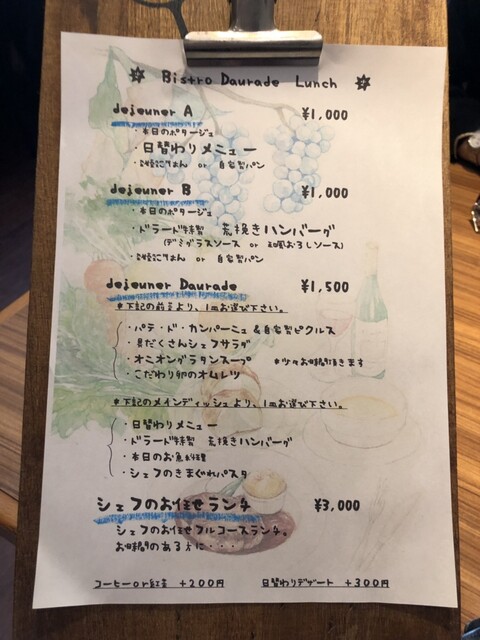 ✡ Bistro Daurade Lunch ✡
dejeuner A ¥1,000
・本日のポタージュ
・日替わりメニュー
・雑穀ごはん or 自家製パン
dejeuner B ¥1,000
・本日のポタージュ
・ドラード特製 荒挽きハンバーグ
(デミグラスソース or 和風おろしソース)
・雑穀ごはん or 自家製パン
dejeuner Daurade ¥1,500
*下記の前菜より、1皿お選び下さい。
・パテ・ド・カンパーニュ&自家製ピクルス
・具だくさんシェフサラダ
・オニオングラタンスープ *少々お時間頂きます
・こだわり卵のオムレツ
*下記のメインディッシュより、1皿お選び下さい。
・日替わりメニュー
・ドラード特製 荒挽きハンバーグ
・本日のお魚料理
・シェフのきまぐれパスタ
シェフのお任せランチ ¥3,000
シェフのお任せフルコースランチ。
お時間のある方に…
コーヒーor紅茶 +200円 日替わりデザート +300円